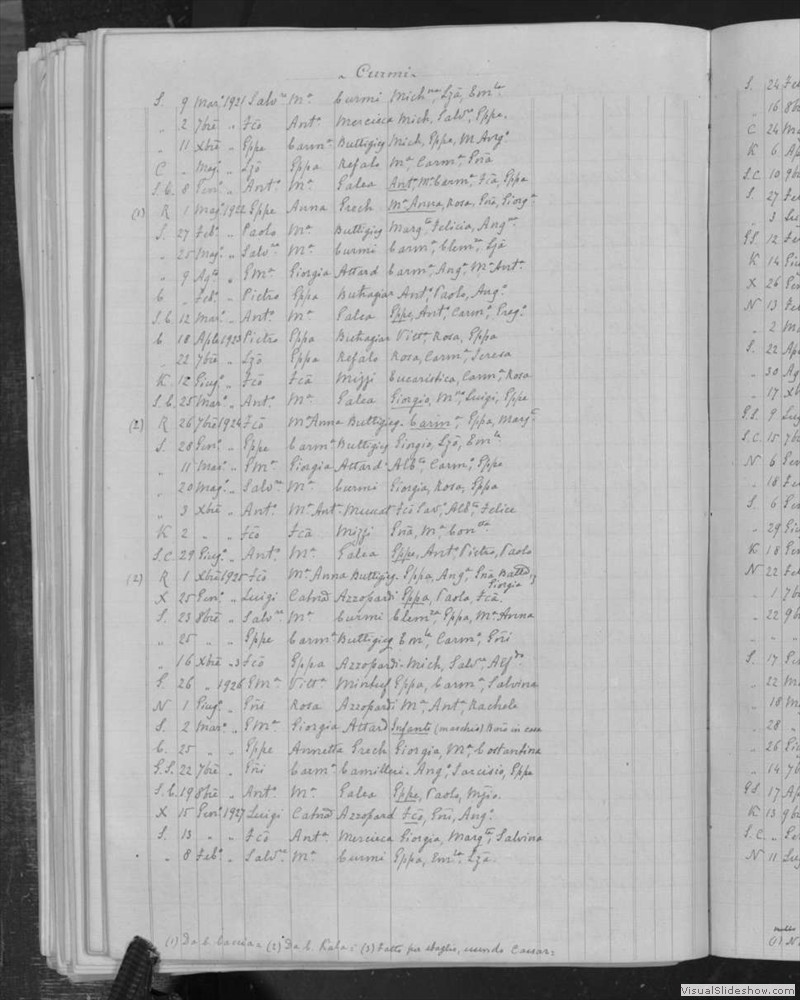 Curmi
S. 9 Mar.º 1921 Salv.re M.ª Curmi Mich.na, Lzâ, Em.la
" 2 7bre " Fcô Ant.ª Mercieca Mich, Salv.a, Eppa.
" 11 Xbre " Eppe Carm.ª Buttigieg Mich, Eppa, M. Ang.ª
C " Mag.º " Lzô Eppa Refalo M.ª Carm.ª Enâ
S.C. 8 Gen.º " Ant.º M.ª Galea Ant.ª, M.ª Carm.ª, Fcâ, Eppa
(1) R 1 Mag.º 1922 Eppe Anna Grech M.ª Anna, Rosa, Enâ, Giorg.ª
S. 27 Feb.º " Paolo M.ª Buttigieg Marg.ta, Felicia, Ang.ª
" 25 Mag.º " Salv.re M.ª Curmi Carm.ª, Clem.ª, Lzâ
" 9 Ag.to " Em.le Giorgia Attard Carm.º, Ang.º, M.ª Ant.ª
C " Feb.º " Pietro Eppa Buhagiar Ant.º, Paolo, Ang.º
S.C. 12 Mar.º " Ant.º M.ª Galea Eppe, Ant.º, Carm.º, Greg.º
C 18 Aple 1923 Pietro Eppa Buhagiar Vitt.ª, Rosa, Eppa
" 22 7bre " Lzô Eppa Refalo Rosa, Carm.ª, Teresa
K. 12 Giug.º " Fcô Fcâ Mizzi Eucaristica, Carm.ª, Rosa
S.C. 25 Mar.º " Ant.º M.ª Galea Giorgio, M.no, Luigi, Eppe
(2) R 26 7bre 1924 Fcô M.ª Anna Buttigieg Carm.ª, Eppa, Marg.ta
S. 28 Gen.º " Eppe Carm.ª Buttigieg Giorgio, Lzô, Em.le
" 11 Mar.º " Em.le Giorgia Attard Alb.to, Carm.º, Eppe
" 20 Mag.º " Salv.re M.ª Curmi Giorgia, Rosa, Eppa
" 3 Xbre " Ant.º M.ª Ant.ª Muscat Fcô Sav.º, Alb.to, Felice
K 2 " " Fcô Fcâ Mizzi Enâ, M.ª Con.tta
S.C. 29 Giug.º " Ant.º M.ª Galea Eppe, Ant.º, Pietro, Paolo
(2) R 1 Xbre 1925 Fcô M.ª Anna Buttigieg Eppa, Ang.ª, Enâ, Batta, Giorgia
X 25 Gen.º " Luigi Catnâ Azzopardi Eppa, Paola, Fcâ
S. 23 8bre " Salv.re M.ª Curmi Clem.na, Eppa, M.ª Anna
" 25 " " Eppe Carm.ª Buttigieg Em.le, Carm.º, Enri
" 16 Xbre " 3 Fcô Eppa Azzopardi Mich, Salv.re, Alf.do
G. 26 " 1926 Em.le Vitt.ª Mintuf Eppa, Carm.ª, Salvina
N 1 Giug.º " Enri Rosa Azzopardi M.ª, Ant.ª, Rachele
S. 2 Mar.º " Em.le Giorgia Attard Infante (maschio) Batto in casa
C. 25 " " Eppe Annetta Grech Giorgia, M.ª, Costantina
G.S. 22 7bre " Enri Carm.ª Camilleri Ang.º, Tarcisio, Eppe
S.C. 19 8bre " Ant.º M.ª Galea Eppe, Paolo
X 15 Gen.º 1927 Luigi Catnâ Azzopardi Fcô, Enri, Ang.º
S. 13 " " Fcô Ant.ª Mercieca Giorgia, Marg.ta, Salvina
" 8 Feb.º " Salv.re M.ª Curmi Eppa, Em.la, Lzâ
(1) Da C. Caccia (2) Da C. Xala (3) Fatto per sbaglio, essendo Cassar:
S. 24 Fe
" 16 8b
C 24 Ma
K 6 Ap
S.C. 10 9b
S. 27 Fe
" 3 Lu
G.S. 12 Fe
K 14 Giu
X 26 Gen
N 13 Fe
" 2 Ma
S. 22 Ap
" 30 Ag
" 17 Xb
G.S. 9 Lug
S.C. 15 7b
N 6 Gen
" 18 Fe
S. 6 Gen
" 29 Giu
K 18 Gen
N 22 Feb
" 1 7b
" 22 9b
" " "
S. 17 Ge
" 22 Ma
" 18 Ma
" 28 "
" 26 Giu
" 14 7b
G.S. 17 Ap
K 13 9b
S.C. " Ge
N 11 Lug
(1) N
VisualSlideshow.com